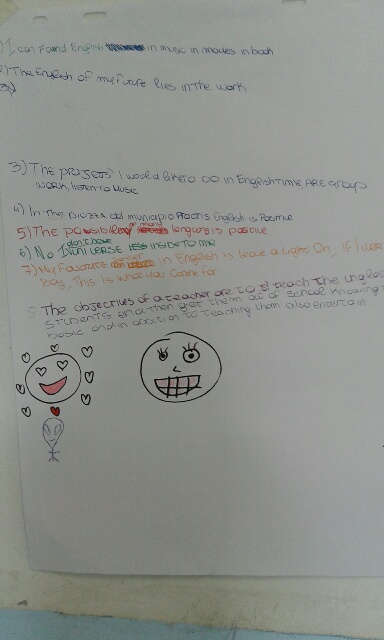 1) I can Found English in music in movies in book
2) The English of my Future lies in the work
3) The projets I would like to do in English time are group
work, listen to Music
4) In the piazza del municipio Practis English is Positive
5) The possibility of many language is positive
6) No I don't have universe inside to me
7) My Favourite in English is leave a Light On, If I Lose
Boy, This is what you Came For
8 The objectives of a teacher are to teach the
students and then get them out of school knowing
basic and in addition to teaching them also entertain